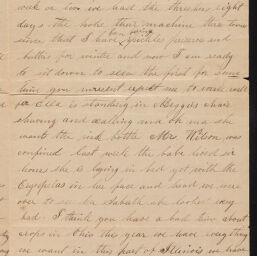 week or two we had the threshers eight
days the broke their machine this town
since that I have been making pickles preserves and
butter for winter and now I am ready
to sit down to the first for some
time you must expect me to
for Ella is standing in chair
shaving and talking and oh ma she
wants the ink bottle Mrs Wilson was
confined last week the babe lived six
hours she is lying in bed yet with the
Erysipelas in her face and head we were
over to see her Sabbath she looked very
bad I think you have a bad time about
crops in this year we have everything
we want in this part of Illinois we have